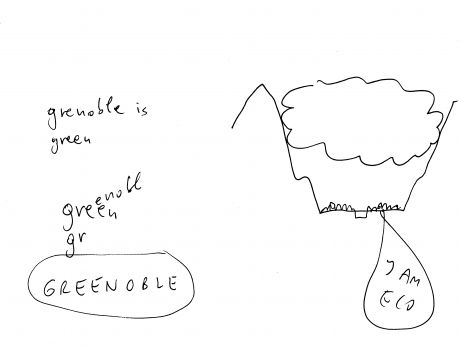 grenoble is
green
enobl
green
gr
GREENOBLE
I AM
ECO